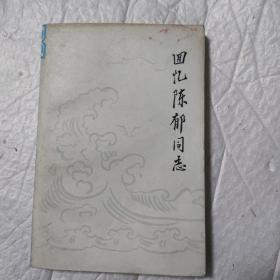 回忆陈郁同志